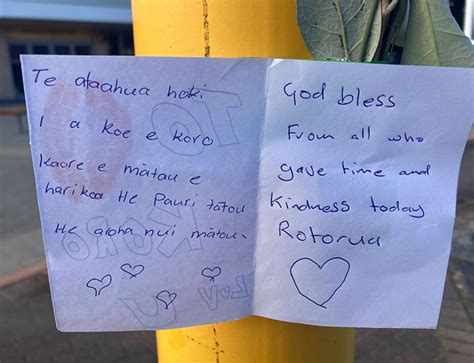 Te ataahua hoki
I a koe e koro
Kaore e mātau e
harikoa He Pauri tātou
He aroha nui mātou.
God bless
From all who
gave time and
Kindness today
Rotorua
TO
KORO
LOV U